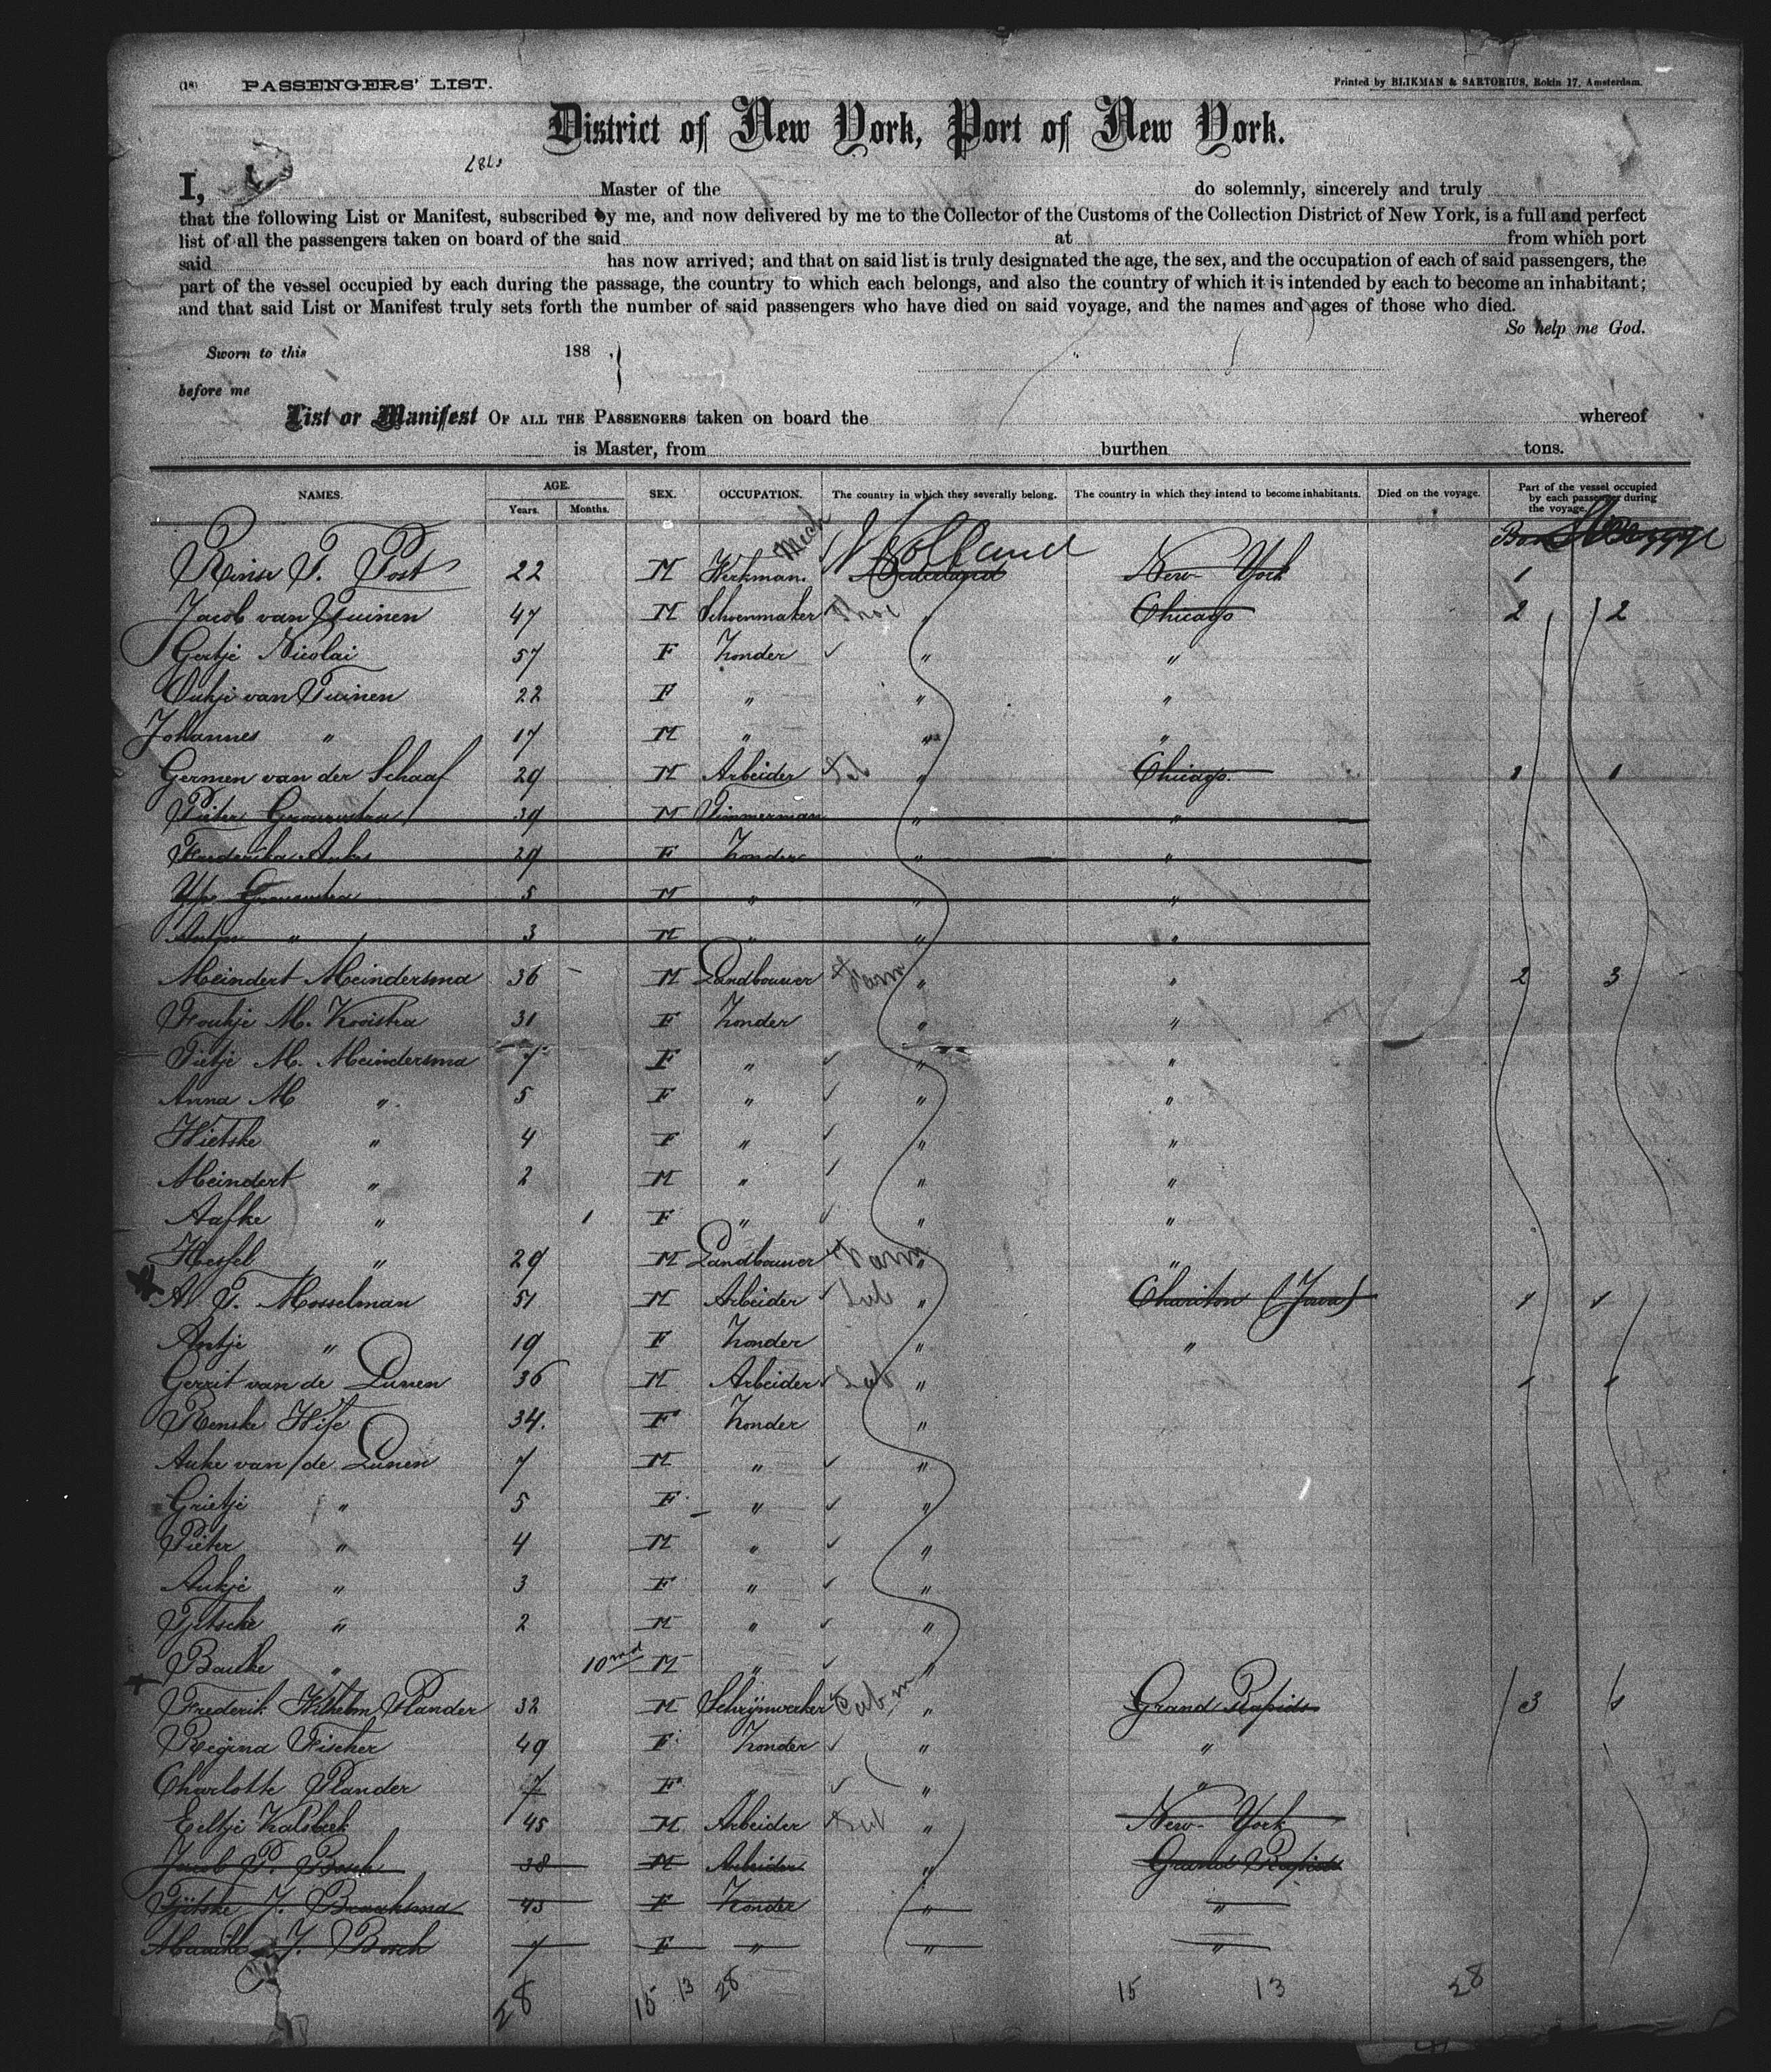 (18) PASSENGERS' LIST. Printed by BLIKMAN & SARTORIUS, Rokin 17, Amsterdam.
District of New York, Port of New York.
I, Master of the do solemnly, sincerely and truly
that the following List or Manifest, subscribed by me, and now delivered by me to the Collector of the Customs of the Collection District of New York, is a full and perfect
list of all the passengers taken on board of the said at from which port
said has now arrived; and that on said list is truly designated the age, the sex, and the occupation of each of said passengers, the
part of the vessel occupied by each during the passage, the country to which each belongs, and also the country of which it is intended by each to become an inhabitant;
and that said List or Manifest truly sets forth the number of said passengers who have died on said voyage, and the names and ages of those who died.
So help me God.
Sworn to this 188
before me
List or Manifest OF ALL THE PASSENGERS taken on board the whereof
is Master, from burthen tons.
NAMES. AGE. Years. Months. SEX. OCCUPATION. The country in which they severally belong. The country in which they intend to become inhabitants. Died on the voyage. Part of the vessel occupied by each passenger during the voyage.
Mech Holland
Rinse T. Post 22 M Werkman. Nederland New-York 1
Jacob van Tuinen 47 M Schoenmaker Shoe " Chicago 2 2
Gertje Nicolai 57 F Zonder " "
Oukje van Tuinen 22 F " " "
Johannes " 17 M " " "
Germen van der Schaaf 29 M Arbeider Lab " Chicago. 1 1
Pieter 39 M Timmerman " "
Frederika 29 F Zonder " "
5 M " " "
" 3 M " " "
Meindert Meindersma 36 M Landbouwer Farm " " 2 3
Foukje M. Kooistra 31 F Zonder " "
Tietje M. Meindersma 7 F " " "
Anna M " 5 F " " "
Wietske " 4 F " " "
Meindert " 2 M " " "
Aafke " 1 F " " "
Hessel " 29 M Landbouwer Farm " "
A. T. Mosselman 51 M Arbeider Lab " Chariton (Jowa) 1 1
Antje " 19 F Zonder " "
Gerrit van de Lunen 36 M Arbeider Lab " 1 1
Renske Wife 34. F Zonder "
Auke van de Lunen 7 M " "
Grietje " 5 F " "
Pieter " 4 M " "
Aukje " 3 F " "
Tjitsche " 2 M " "
Bauke " 10 M " "
Frederik Wilhelm Plander 32 M Schrijnwerker Cabm " Grand Rapids 3 1
Regina Fischer 49 F Zonder " "
Charlotte Plander 7 F " " "
Eeltje Kalsbeek 45 M Arbeider Lab " New-York
Jacob P. Bosch 38 M Arbeider " Grand Rapids
Tjitske J. Braaksma 43 F Zonder " "
J. Bosch 7 F " " "
28 15 13 28 15 13 28